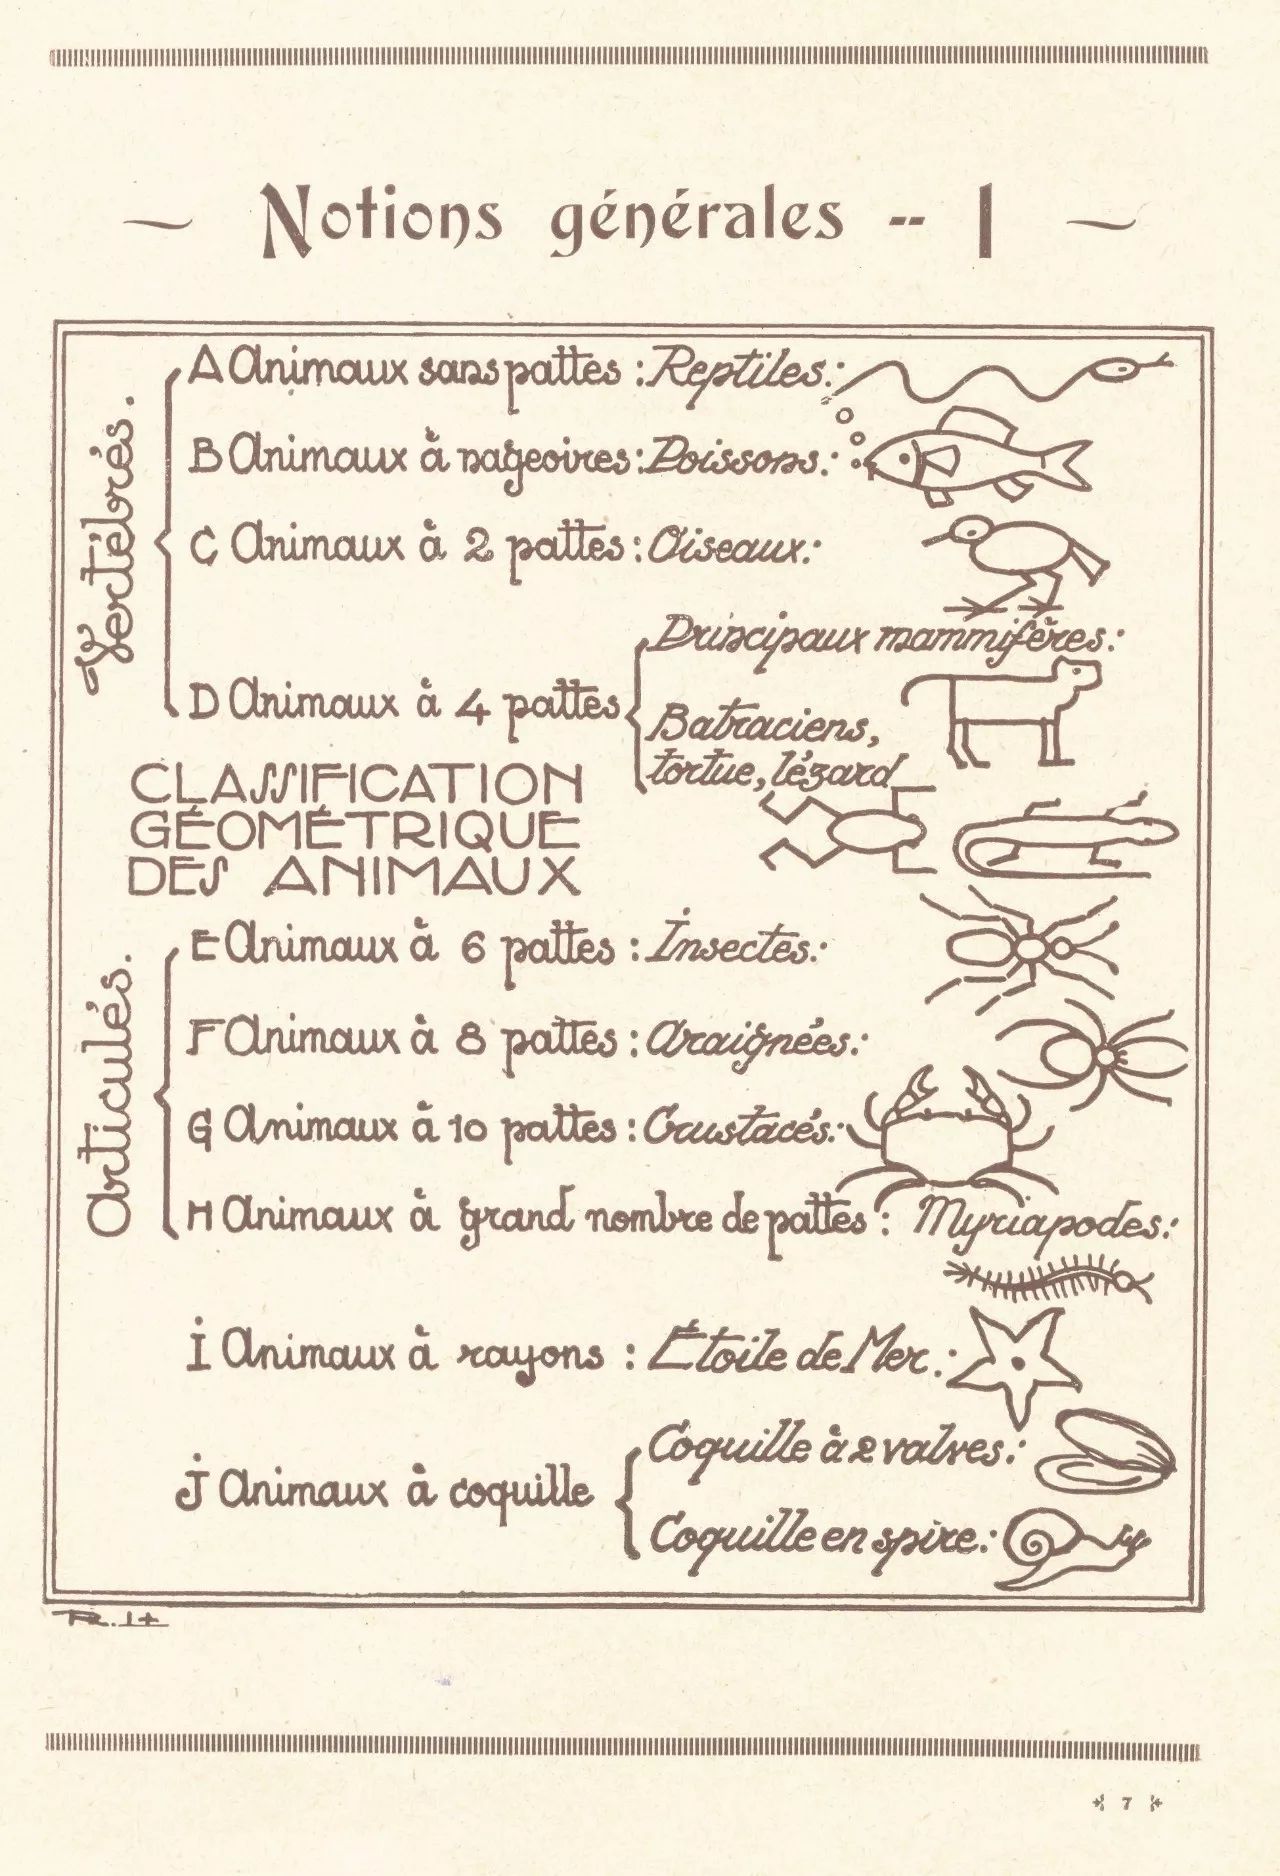 Notions générales -- I
Vertébrés.
A Animaux sans pattes : Reptiles:
B Animaux à nageoires: Poissons:
C Animaux à 2 pattes : Oiseaux:
D Animaux à 4 pattes
Principaux mammifères:
Batraciens,
tortue, lézard
CLASSIFICATION
GÉOMÉTRIQUE
DES ANIMAUX
Articulés.
E Animaux à 6 pattes : Insectes:
F Animaux à 8 pattes : Araignées:
G Animaux à 10 pattes : Crustacés:
H Animaux à grand nombre de pattes : Myriapodes:
I Animaux à rayons : Étoile de Mer.:
J Animaux à coquille
Coquille à 2 valves:
Coquille en spire:
7